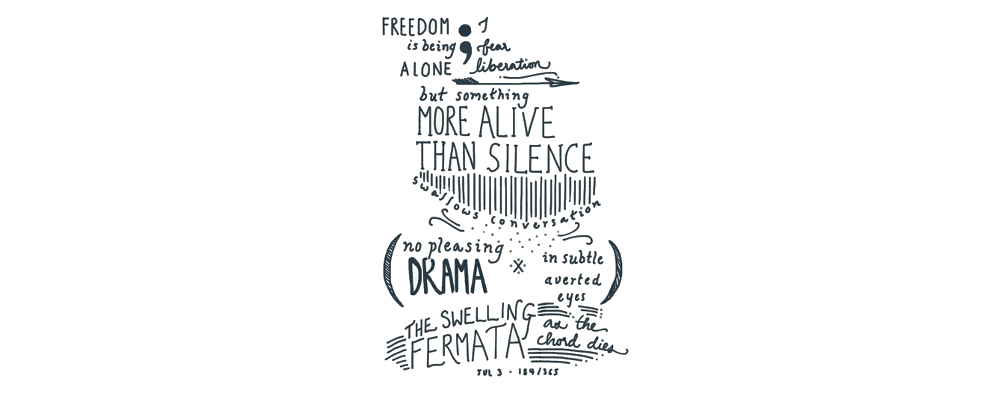 FREEDOM ; I
is being fear
ALONE liberation
but something
MORE ALIVE
THAN SILENCE
swallows conversation
(no pleasing
DRAMA
in subtle
averted
eyes)
THE SWELLING
FERMATA
as the
chord dies
JUL 3 - 184/365